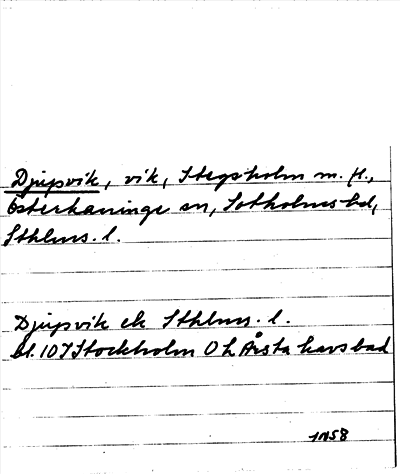 Djupsvik, vik, Stegsholm m. fl.,
Österhaninge sn, Sotholms hd,
Sthlms. l.
Djupsvik ek Sthlms. l.
bl. 10I Stockholm O h Årsta havsbad
1958